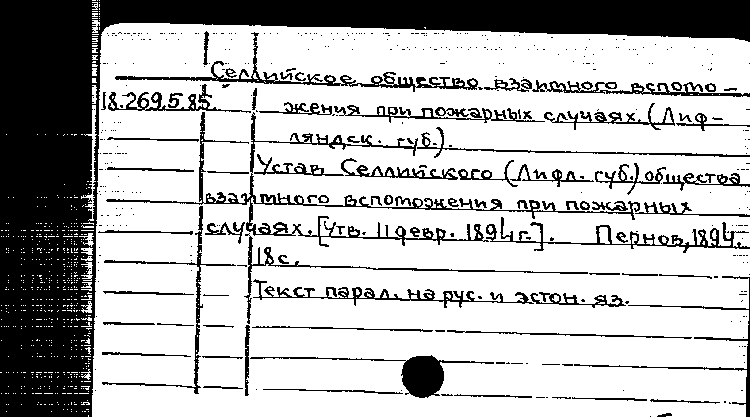 Селлийское общество взаимного вспомо-
18.269.5.85. жения при пожарных случаях. (Лиф-
ляндск. губ.).
Устав Селлийского (Лифл. губ.) общества
взаимного вспоможения при пожарных
случаях. [Утв. 11 февр. 1894 г.]. Пернов, 1894.
18 с.
Текст парал. на рус. и эстон. яз.